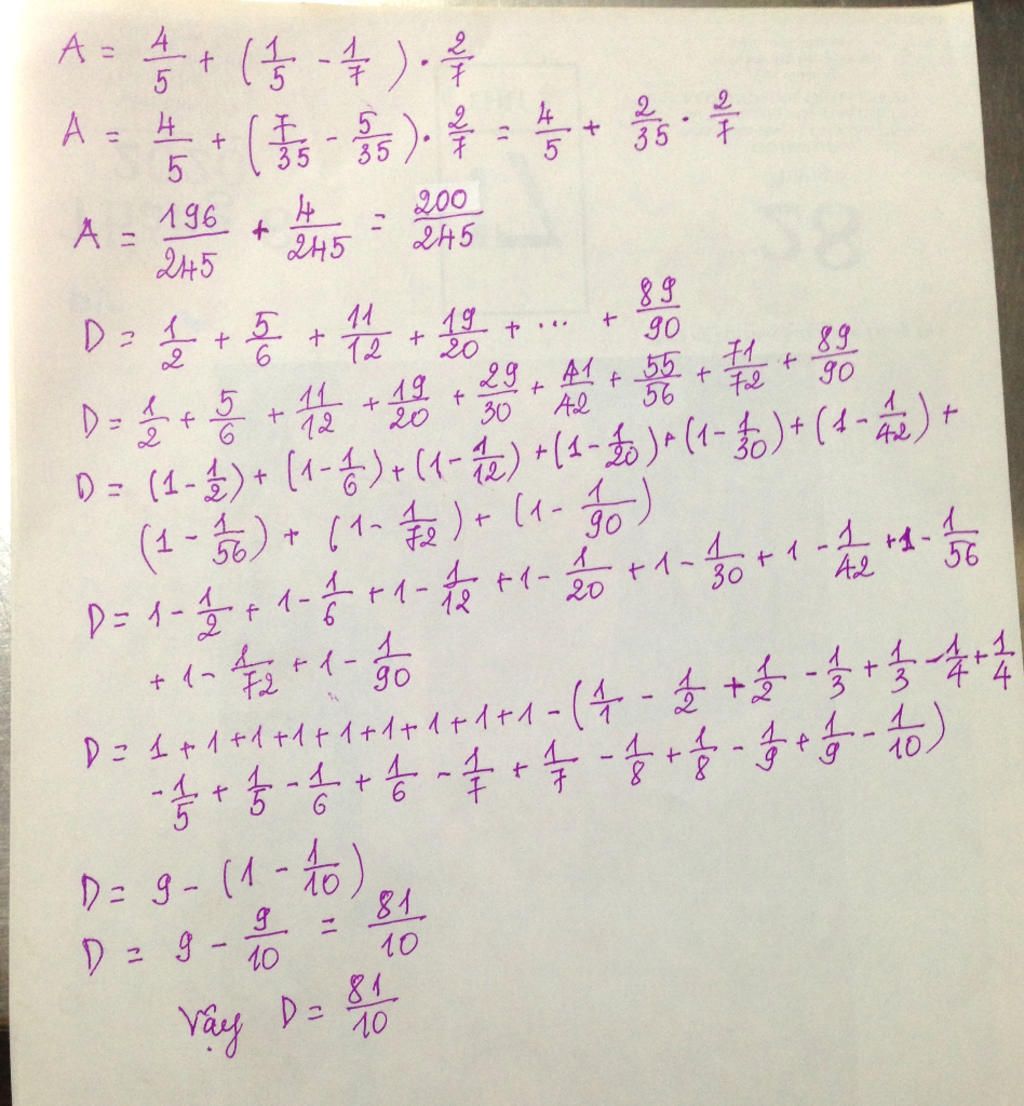 A = 4/5 + (1/5 - 1/7) . 2/7
A = 4/5 + (7/35 - 5/35) . 2/7 = 4/5 + 2/35 . 2/7
A = 196/245 + 4/245 = 200/245
D = 1/2 + 5/6 + 11/12 + 19/20 + ... + 89/90
D = 1/2 + 5/6 + 11/12 + 19/20 + 29/30 + 41/42 + 55/56 + 71/72 + 89/90
D = (1 - 1/2) + (1 - 1/6) + (1 - 1/12) + (1 - 1/20) + (1 - 1/30) + (1 - 1/42) +
(1 - 1/56) + (1 - 1/72) + (1 - 1/90)
D = 1 - 1/2 + 1 - 1/6 + 1 - 1/12 + 1 - 1/20 + 1 - 1/30 + 1 - 1/42 + 1 - 1/56
+ 1 - 1/72 + 1 - 1/90
D = 1 + 1 + 1 + 1 + 1 + 1 + 1 + 1 + 1 - (1/1 - 1/2 + 1/2 - 1/3 + 1/3 - 1/4 + 1/4
- 1/5 + 1/5 - 1/6 + 1/6 - 1/7 + 1/7 - 1/8 + 1/8 - 1/9 + 1/9 - 1/10)
D = 9 - (1 - 1/10)
D = 9 - 9/10 = 81/10
Vậy D = 81/10